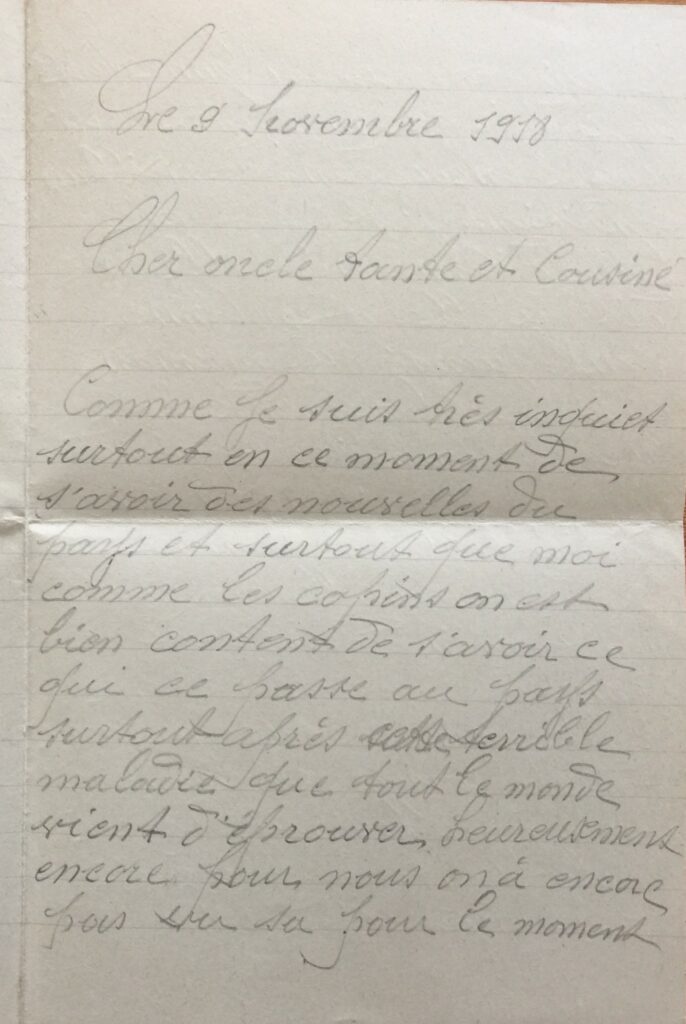 Le 9 Novembre 1918
Cher oncle tante et Cousine
Comme je suis très inquiet
surtout en ce moment de
s'avoir des nouvelles du
pays et surtout que moi
comme les copins on est
bien content de s'avoir ce
qui ce passe au pays
surtout après cette terrible
maladie que tout le monde
vient d'éprouver, heureusement
encore pour nous on à encore
pas vu sa pour le moment